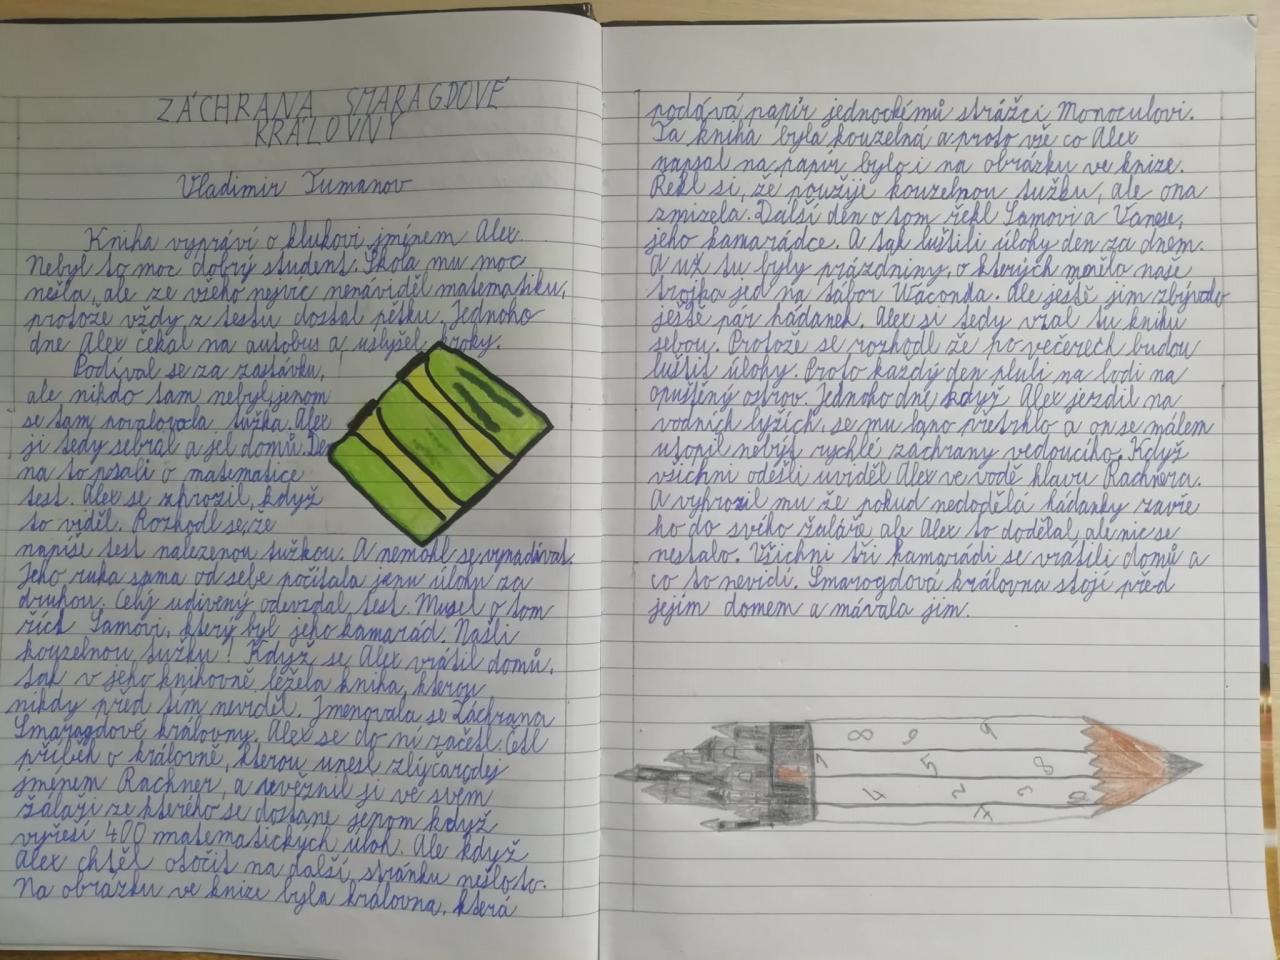 ZÁCHRANA SMARAGDOVÉ
KRÁLOVNY
Vladimir Tumanov
Kniha vypráví o klukovi jménem Alex.
Nebyl to moc dobrý student. Škola mu moc
nešla, ale ze všeho nejvíc nenáviděl matematiku,
protože vždy z testu dostal pětku. Jednoho
dne Alex čekal na autobus a uslyšel kroky.
Podíval se za zastávku,
ale nikdo tam nebyl, jenom
se tam povalovala tužka. Alex
ji tedy sebral a jel domů. Den
na to psali o matematice
test. Alex se zhrozil, když
to viděl. Rozhodl se, že
napíše test nalezenou tužkou. A nemohl se vynadívat.
Jeho ruka sama od sebe počítala jenu úlohu za
druhou. Celý udivený odevzdal test. Musel o tom
říct Samovi, který byl jeho kamarád. Našli
kouzelnou tužku! Když se Alex vrátil domů,
tak v jeho knihovně ležela kniha, kterou
nikdy před tím neviděl. Jmenovala se Záchrana
Smaragdové královny. Alex se do ní začetl. Četl
příběh o královně, kterou unesl zlý čaroděj
jménem Rachner, a uvěznil ji ve svém
žaláři ze kterého se dostane jenom když
vyřeší 400 matematických úloh. Ale když
Alex chtěl otočit na další stránku nešlo to.
Na obrázku ve knize byla královna, která
podává papír jednookému strážci Monoculovi.
Ta kniha byla kouzelná a proto vše co Alex
napsal na papír bylo i na obrázku ve knize.
Řekl si, že použije kouzelnou tužku, ale ona
zmizela. Další den o tom řekl Samovi a Vanese,
jeho kamarádce. A tak luštili úlohy den za dnem.
A už tu byly prázdniny, o kterých měla naše
trojka jed na tábor Waconda. Ale ještě jim zbývalo
ještě pár hádanek. Alex si tedy vzal tu knihu
sebou. Protože se rozhodl že po večerech budou
luštit úlohy. Proto každý den pluli na lodi na
opuštěný ostrov. Jednoho dne když Alex jezdil na
vodních lyžích, se mu lano přetrhlo a on se málem
utopil nebýt rychlé záchrany vedoucího. Když
všichni odešli uviděl Alex ve vodě hlavu Rachnera.
A vyhrozil mu že pokud nedodělá hádanky zavře
ho do svého žaláře ale Alex to dodělal, ale nic se
nestalo. Všichni tři kamarádi se vrátili domů a
co to nevidí. Smaragdová královna stojí před
jejím domem a mávala jim.
8 6 9
1 5 8
4 2 3
7